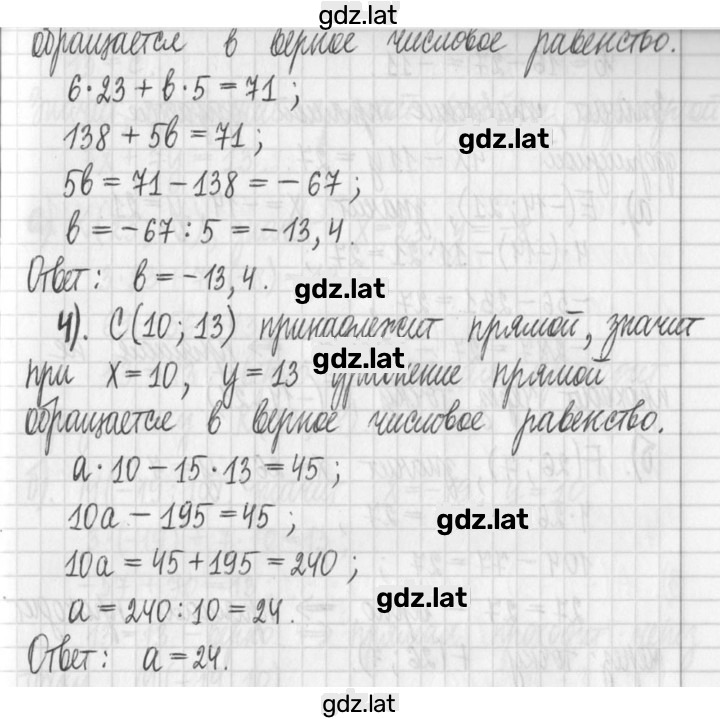 gdz.lat
обращается в верное числовое равенство.
6·23 + в·5 = 71 ;
138 + 5в = 71 ;
gdz.lat
5в = 71 − 138 = − 67 ;
в = −67 : 5 = −13,4.
Ответ: в = −13,4.
gdz.lat
4). С(10; 13) принадлежит прямой, значит
gdz.lat
при х = 10, у = 13 уравнение прямой
обращается в верное числовое равенство.
а · 10 − 15 · 13 = 45 ;
10а − 195 = 45 ;
gdz.lat
10а = 45 + 195 = 240 ;
а = 240 : 10 = 24.
gdz.lat
Ответ: а = 24.
gdz.lat